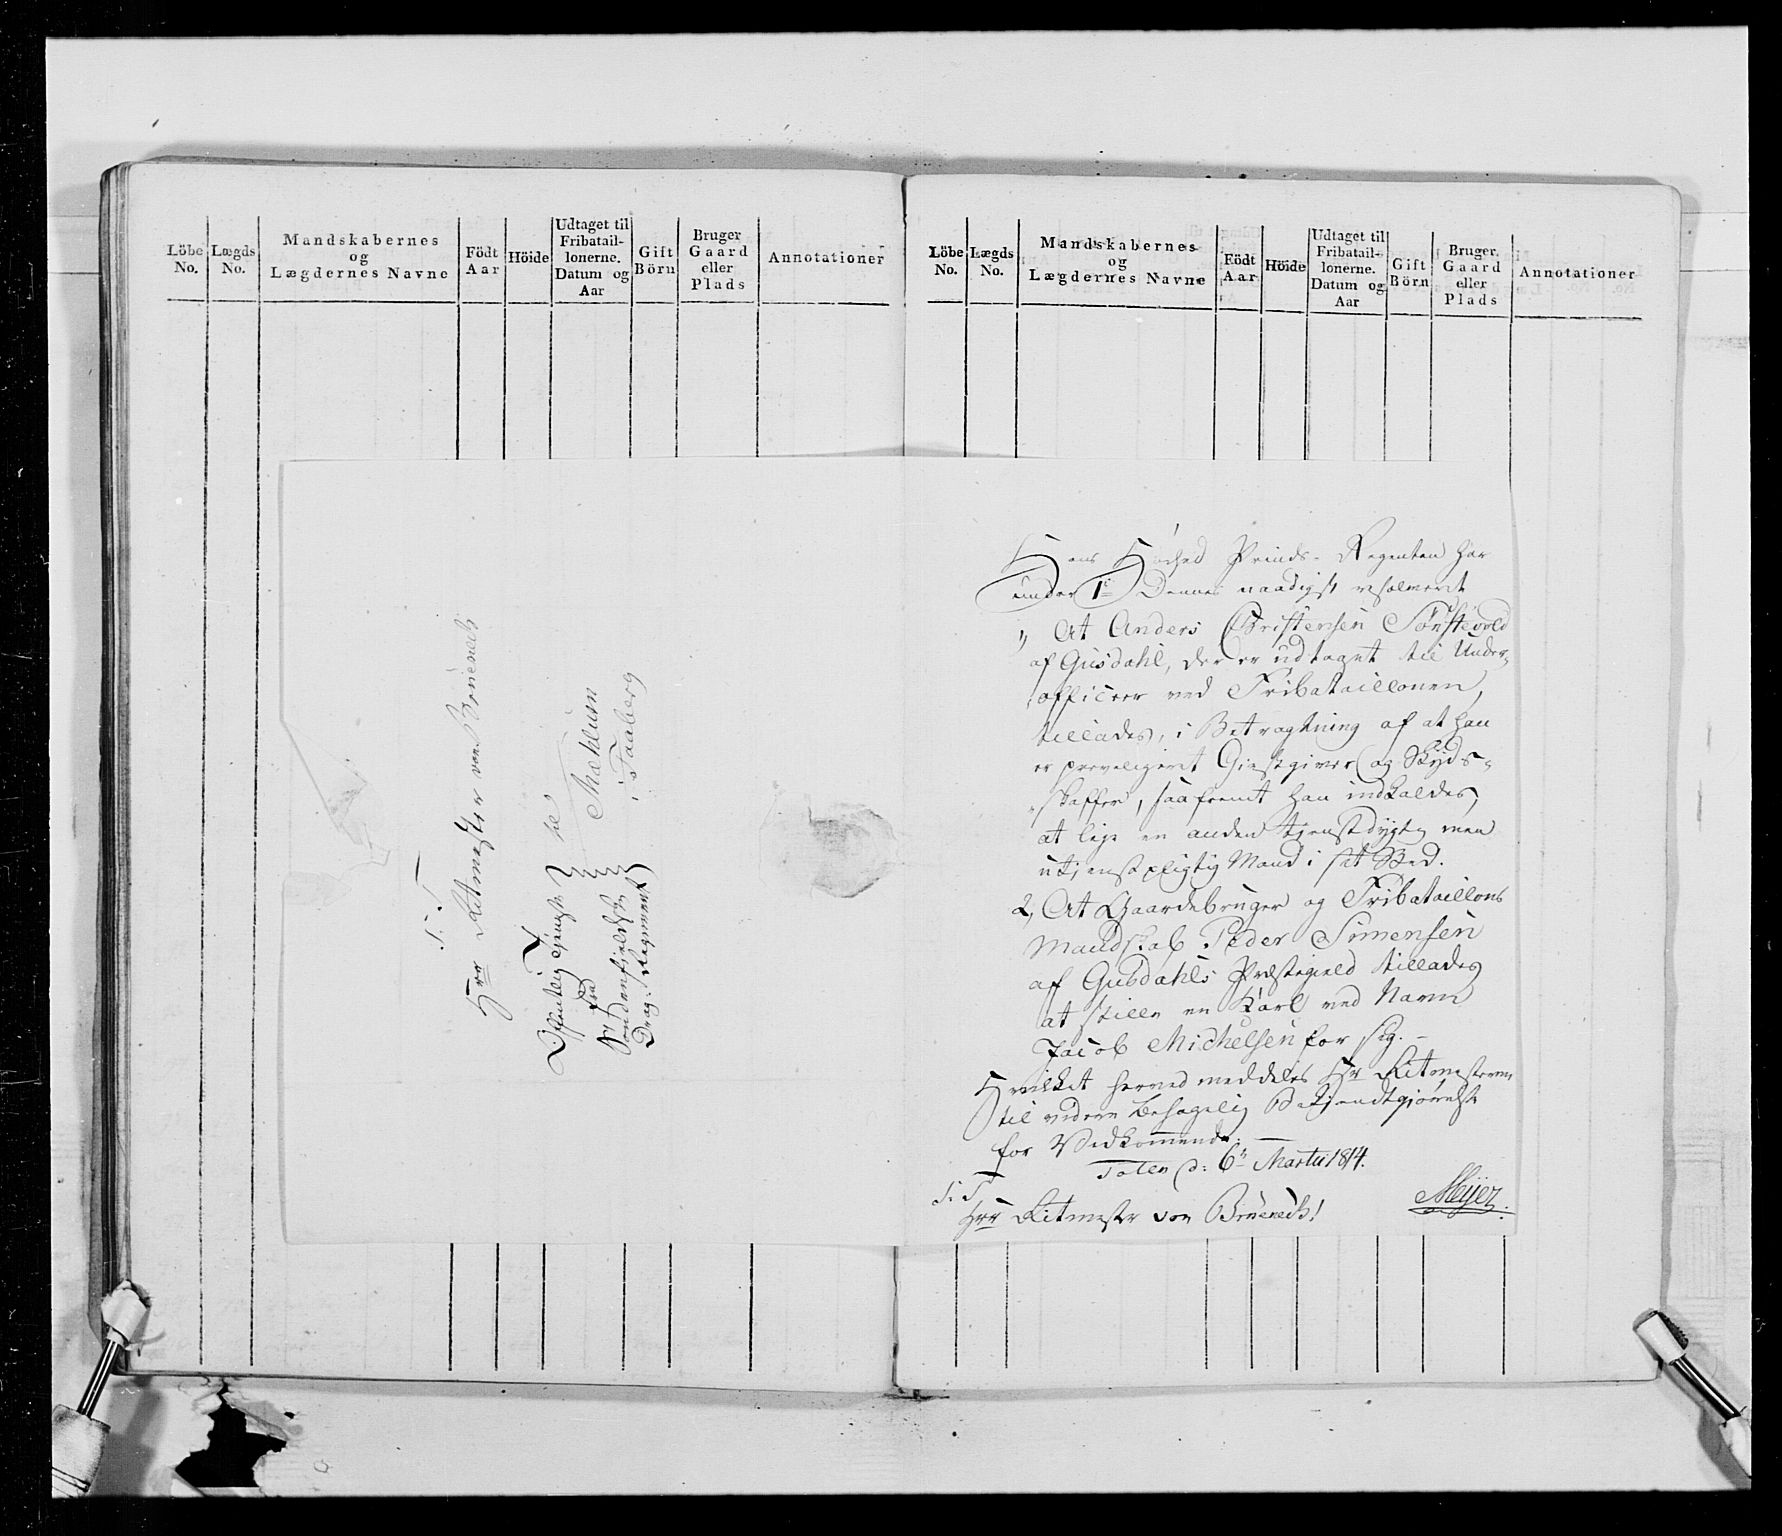 Löbe No.
Lægds No.
Mandskabernes og Lægdernes Navne
Födt Aar
Höide
Udtaget til Fribatail- lonerne. Datum og Aar
Gift Börn
Bruger Gaard eller Plads
Annotationer
Löbe No.
Lægds No.
Mandskabernes og Lægdernes Navne
Födt Aar
Höide
Udtaget til Fribatail- lonerne. Datum og Aar
Gift Börn
Bruger. Gaard eller Plads
Annotationer
S. T.
Hrr Ritmester von Brüneck
til
Mæhlum
i Faaberg
Offentlig Tjeneste
fra
Söndenfjeldske
Drag: Regiment
Hans Höihed Prinds-Regenten har
under 1e Dennes naadigst resolveret
1, At Anders Christensen Tönstevold
af Gusdahl, der er udtaget til Under-
officeer ved Fribataillonen,
tillades, i Betragtning af at han
er preveligeret Giestgiver og Skyds-
skaffer, saafremt han indkaldes,
at leje en anden tjenstdygtig men
utjenstpligtig Mand i sit Sted.
2, At Gaardebruger og Fribataillons
Mandskab Peder Simensen
af Gusdahls Præstegield tillades
at stille en Karl ved Navn
Jacob Michelsen for sig. –
Hvilket herved meddeles Hr Ritmesteren
til videre behagelig Bekjendtgjörelse
for Vedkommende. —
Toten d: 6te Martii 1814.
Meijer.
S. T.
Hrr Ritmester von Brüneck!